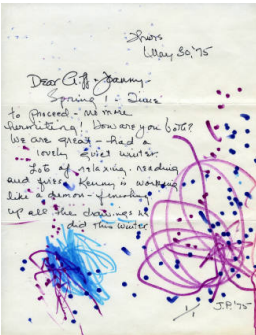 May 30, '75
Dear
Spring! - Time
to proceed - no more
How are you both?
We are great - had a
lovely quiet winter.
Lots of relaxing, reading
and fires. Kenny is working
like a demon - finishing
up all the drawings he
did this winter.
1/1 J.P. '75